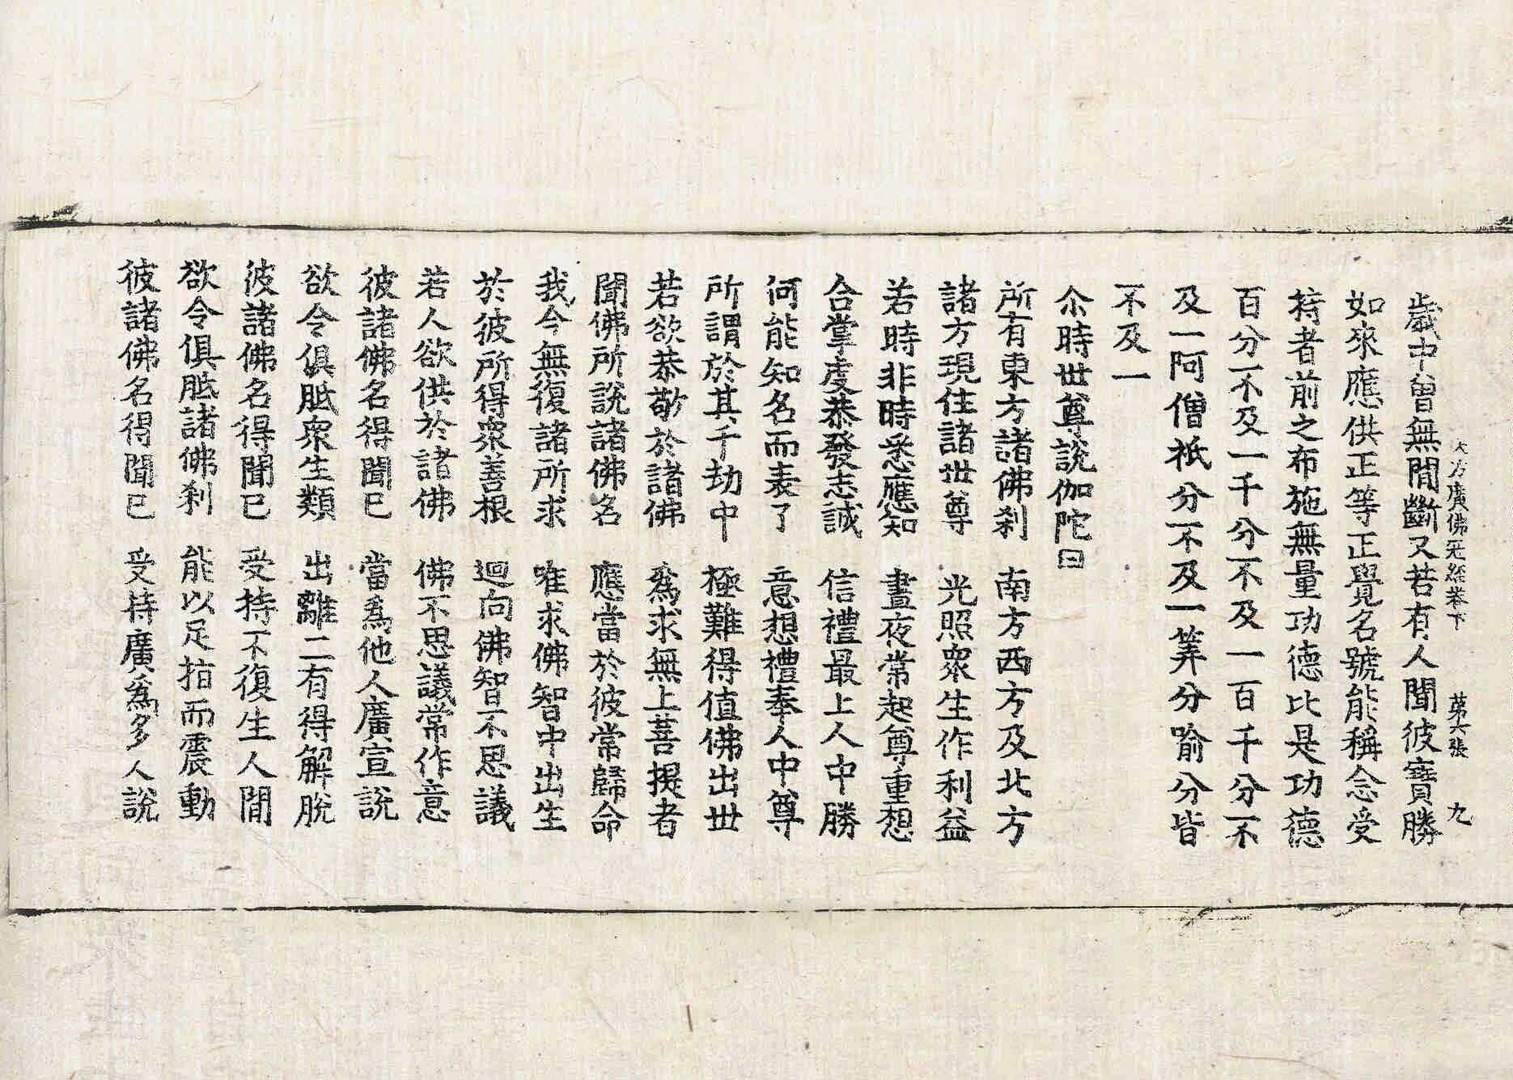 大方廣佛冠經卷下 第六張 九
歲中曾無間斷又若有人聞彼寶勝
如來應供正等正覺名號能稱念受
持者前之布施無量功德比是功德
百分不及一千分不及一百千分不
及一阿僧祇分不及一筭分喻分皆
不及一
尒時世尊說伽陀曰
所有東方諸佛刹 南方西方及北方
諸方現住諸世尊 光照衆生作利益
若時非時悉應知 晝夜常起尊重想
合掌虔恭發志誠 信禮最上人中勝
何能知名而表了 意想禮奉人中尊
所謂於其千劫中 極難得值佛出世
若欲恭敬於諸佛 爲求無上菩提者
聞佛所說諸佛名 應當於彼常歸命
我今無復諸所求 唯求佛智中出生
於彼所得衆善根 迴向佛智不思議
若人欲供於諸佛 佛不思議常作意
彼諸佛名得聞已 當爲他人廣宣說
欲令俱胝衆生類 出離二有得解脫
彼諸佛名得聞已 受持不復生人間
欲令俱胝諸佛刹 能以足指而震動
彼諸佛名得聞已 受持廣爲多人說